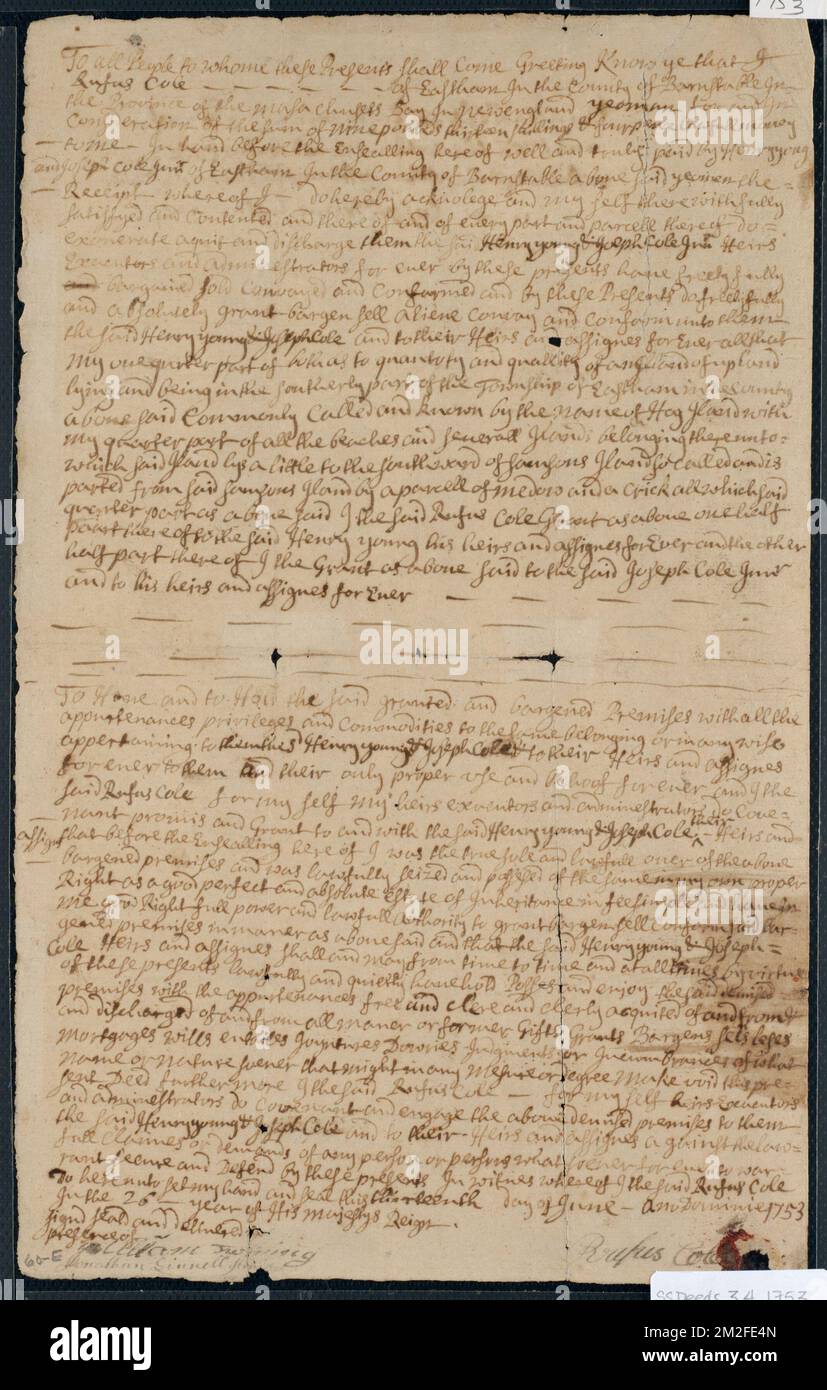 1753
To all People to whome these Presents shall Come Greeting Know ye that I
Rufus Cole - - - - - of Eastham In the County of Barnstable In
the Province of the Masachusets Bay In Newengland yeoman for and In
Conceration of the sum of nine pounds thirteen shilings & fourpence Lawfull money
to me - In hand before the Ensealling here of well and truly paid by Henry young
and Joseph Cole Junr of Eastham In the County of Barnstable above said yeomen the =
- Receipt whereof I - do hereby acknolege and my self therewith fully
satisfyed and Contented and there of and of every part and parcelle thereof do -
exonerate aquit and discharge them the said Henry young & Joseph Cole Junr Heirs
Executors and Administrators for ever by these presents have freely fully
and bargained sold Convayed and Conformed and by these Presents do freely fully
and absolutely grant bargen sell aliene Convay and Conform unto them
the said Henry young & Joseph Cole and to their Heirs and assignes for Ever all that
My one qurter part of both as to quantoty and quallity of an Iland of upland
lying and being in the southerly part of the Township of Eastham in the County
above said Commonly Called and known by the name of Hog Iland with
my quarter part of all the beaches and severall Ilands belonging there unto =
which said Iland lys a little to the southward of Samsons Iland so Called and is
parted from said Samsons Iland by a parcell of medow and a Crick all which said
qurter part as above said I the said Rufus Cole Grant as above one half
paart there of to the said Henry young his heirs and assignes for Ever and the other
half part there of I the Grant as above said to the said Joseph Cole Junr
and to his heirs and assignes for Ever - - - -
To Have and to Hold the said granted and bargened Premises with all the
appurtenances privileges and Commodities to the same belonging or in any wise
appertaining to them the sd Henry young & Joseph Cole & to their Heirs and assignes
for ever to them and their only proper use and behoof for ever and I the
said Rufus Cole for my self my heirs executors and administrators do Cove =
nant promis and Grant to and with the said Henry young & Joseph Cole their Heirs and
assigns that before the Ensealling here of I was the true sole and lawfull oner of the above
bargened premises and was lawfully seized and possesed of the same in my own proper
Right as a good perfect and absolute Estate of Inheritance in fee simple
me good Right full power and lawfull authority to grant bargen sell conform said bar-
gened premises in maner as above said and that the said Henry young & Joseph =
Cole Heirs and assignes shall and may from time to time and at all times by virtue
of these presents lawfully and quietly have hold Possess and enjoy the said demised
premises with the appurtenances free and clere and clerly acquited of and from &
and discharged of and from all maner or former Gifts Grants Bargens sels leses
Mortgages wills entailes Jountures Dowries Judgments or Incumbrances of what
name or nature soever that might in any mesure or degree make void this pre =
sent Deed further more I the said Rufus Cole - for my self heirs Executors
and administrators do Covenant and engage the above demised premises to them
the said Henry young & Joseph Cole and to their Heirs and assignes against the law =
full Claimes or demands of any person or persons what soever for ever to war -
rant secure and Defend by these presents In witnes where of I the said Rufus Cole
To here unto set my hand and seal this thirteenth day of June - Ano Dominie 1753
In the 26 - year of His Majestys Reign.
Signd seald and delivered
presence of
William
Jonathan Linnell Jur
Rufus Cole
60-E
SSDeeds 3.4.1753
alamy
Image ID: 2M2FE4N
www.alamy.com